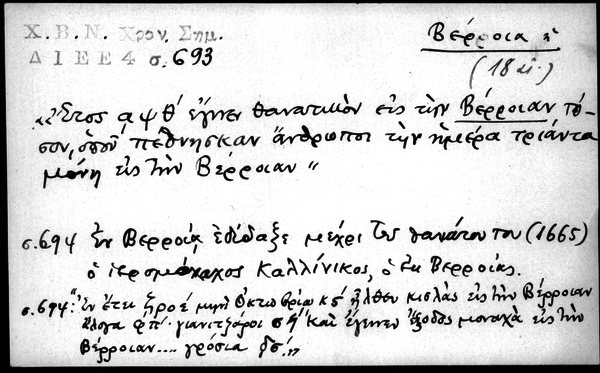 Χ. Β. Ν. Χρον. Σημ.
Δ Ι Ε Ε 4 σ. 693
Βέρροια
(18 αι.)
«Ἔτος αψθ' ἔγινεν θανατικὸν εἰς τὴν Βέρροιαν τό-
σον, ὁποῦ πεθνησκαν ἄνθρωποι τὴν ἡμέρα τριάντα
μόνη εἰς τὴν Βέρροιαν"
σ. 694 Ἐν Βερροίᾳ ἐδίδαξε μέχρι τοῦ θανάτου του (1665)
ὁ ἱερομόναχος Καλλίνικος, ὁ ἐκ Βερροίας.
σ. 694. "Ἐν ἔτει ͵ζροέ μηνὶ Ὀκτωβρίῳ κϛ' ἦλθεν κισλὰς εἰς τὴν Βέρροιαν
ἄλογα φπ' γιανιτζάροι σή καὶ ἔγεινεν ἔξοδος μοναχὰ εἰς τὴν
Βέρροιαν.... γρόσια